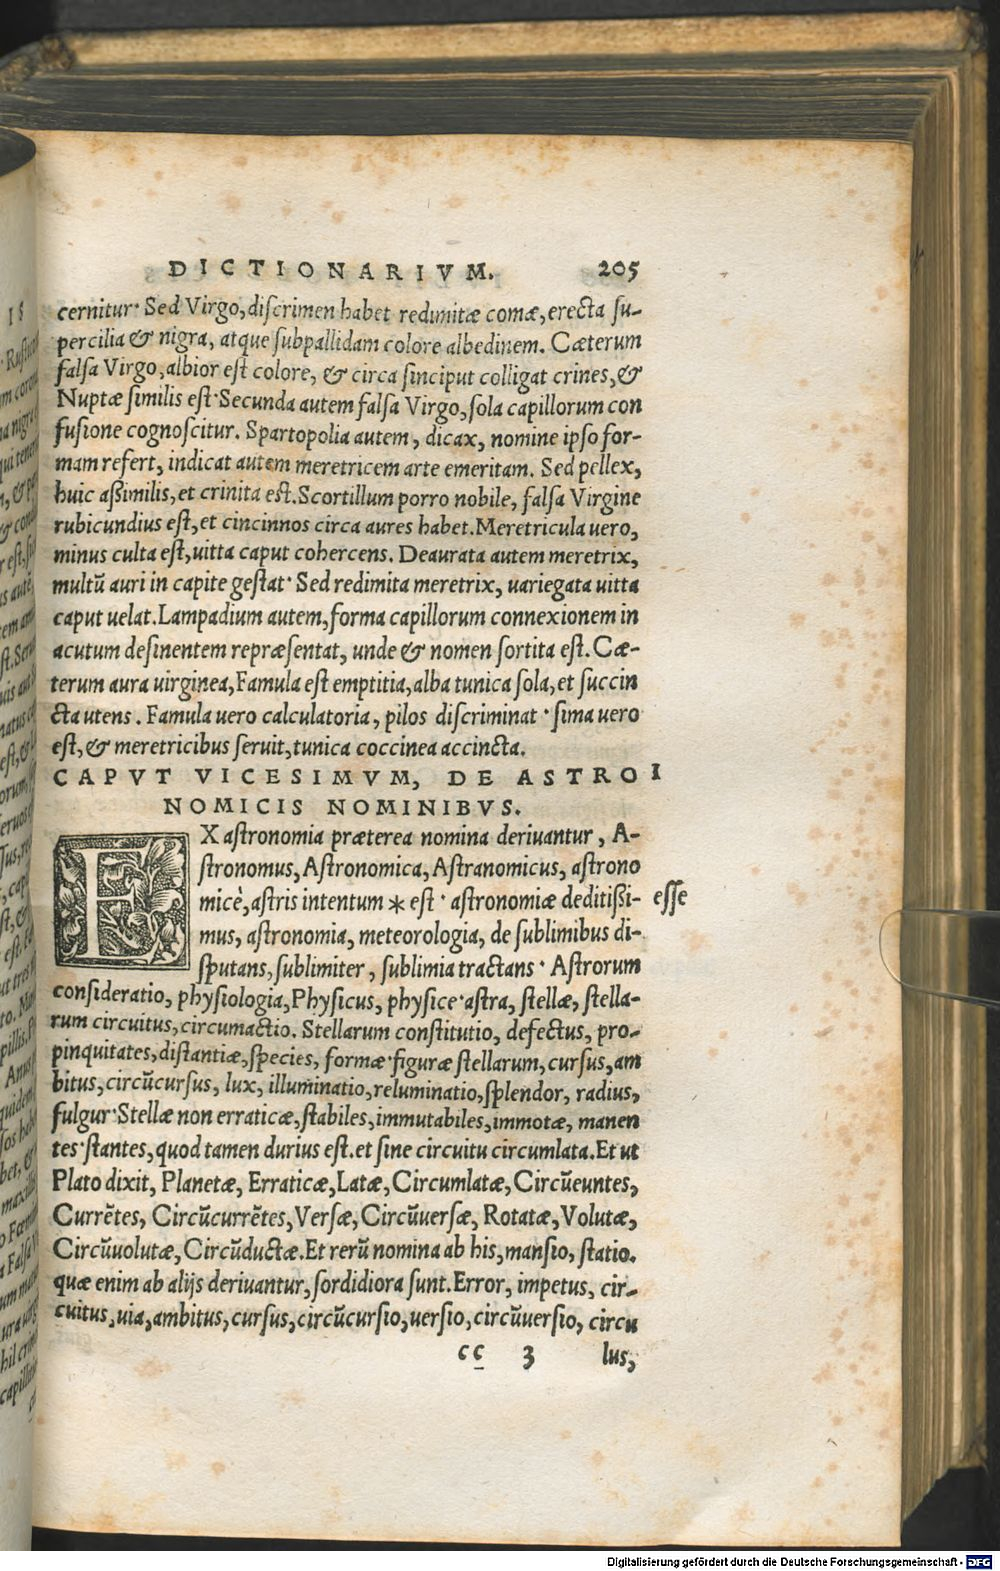 DICTIONARIVM. 205
cernitur· Sed Virgo, diſcrimen habet redimitæ comæ, erecta ſu-
percilia & nigra, atque ſubpallidam colore albedinem. Cæterum
falſa Virgo, albior eſt colore, & circa ſinciput colligat crines, &
Nuptæ ſimilis eſt· Secunda autem falſa Virgo, ſola capillorum con
fuſione cognoſcitur. Spartopolia autem, dicax, nomine ipſo for-
mam refert, indicat autem meretricem arte emeritam. Sed pellex,
huic aßimilis, et crinita eſt. Scortillum porro nobile, falſa Virgine
rubicundius eſt, et cincinnos circa aures habet. Meretricula uero,
minus culta eſt, uitta caput cohercens. Deaurata autem meretrix,
multū auri in capite geſtat· Sed redimita meretrix, uariegata uitta
caput uelat. Lampadium autem, forma capillorum connexionem in
acutum deſinentem repræſentat, unde & nomen ſortita eſt. Cæ-
terum aura uirginea, Famula eſt emptitia, alba tunica ſola, et ſuccin
cta utens. Famula uero calculatoria, pilos diſcriminat· ſima uero
eſt, & meretricibus ſeruit, tunica coccinea accincta.
CAPVT VICESIMVM, DE ASTRO I
NOMICIS NOMINIBVS.
EX aſtronomia præterea nomina deriuantur, A-
ſtronomus, Aſtronomica, Aſtranomicus, aſtrono
micè, aſtris intentum * eſt· aſtronomiæ deditißi- eſſe
mus, aſtronomia, meteorologia, de ſublimibus di-
ſputans, ſublimiter, ſublimia tractans· Aſtrorum
conſideratio, phyſiologia, Phyſicus, phyſice· aſtra, ſtellæ, ſtella-
rum circuitus, circumactio. Stellarum conſtitutio, defectus, pro-
pinquitates, diſtantiæ, ſpecies, formæ· figuræ ſtellarum, curſus, am
bitus, circūcurſus, lux, illuminatio, reluminatio, ſplendor, radius,
fulgur· Stellæ non erraticæ, ſtabiles, immutabiles, immotæ, manen
tes· ſtantes, quod tamen durius eſt. et ſine circuitu circumlata. Et ut
Plato dixit, Planetæ, Erraticæ, Latæ, Circumlatæ, Circūeuntes,
Currētes, Circūcurrētes, Verſæ, Circūuerſæ, Rotatæ, Volutæ,
Circūuolutæ, Circūductæ. Et rerū nomina ab his, manſio, ſtatio.
quæ enim ab alijs deriuantur, ſordidiora ſunt. Error, impetus, cir-
cuitus, uia, ambitus, curſus, circūcurſio, uerſio, circūuerſio, circu
cc 3 lus,
Digitalisierung gefördert durch die Deutsche Forschungsgemeinschaft - DFG